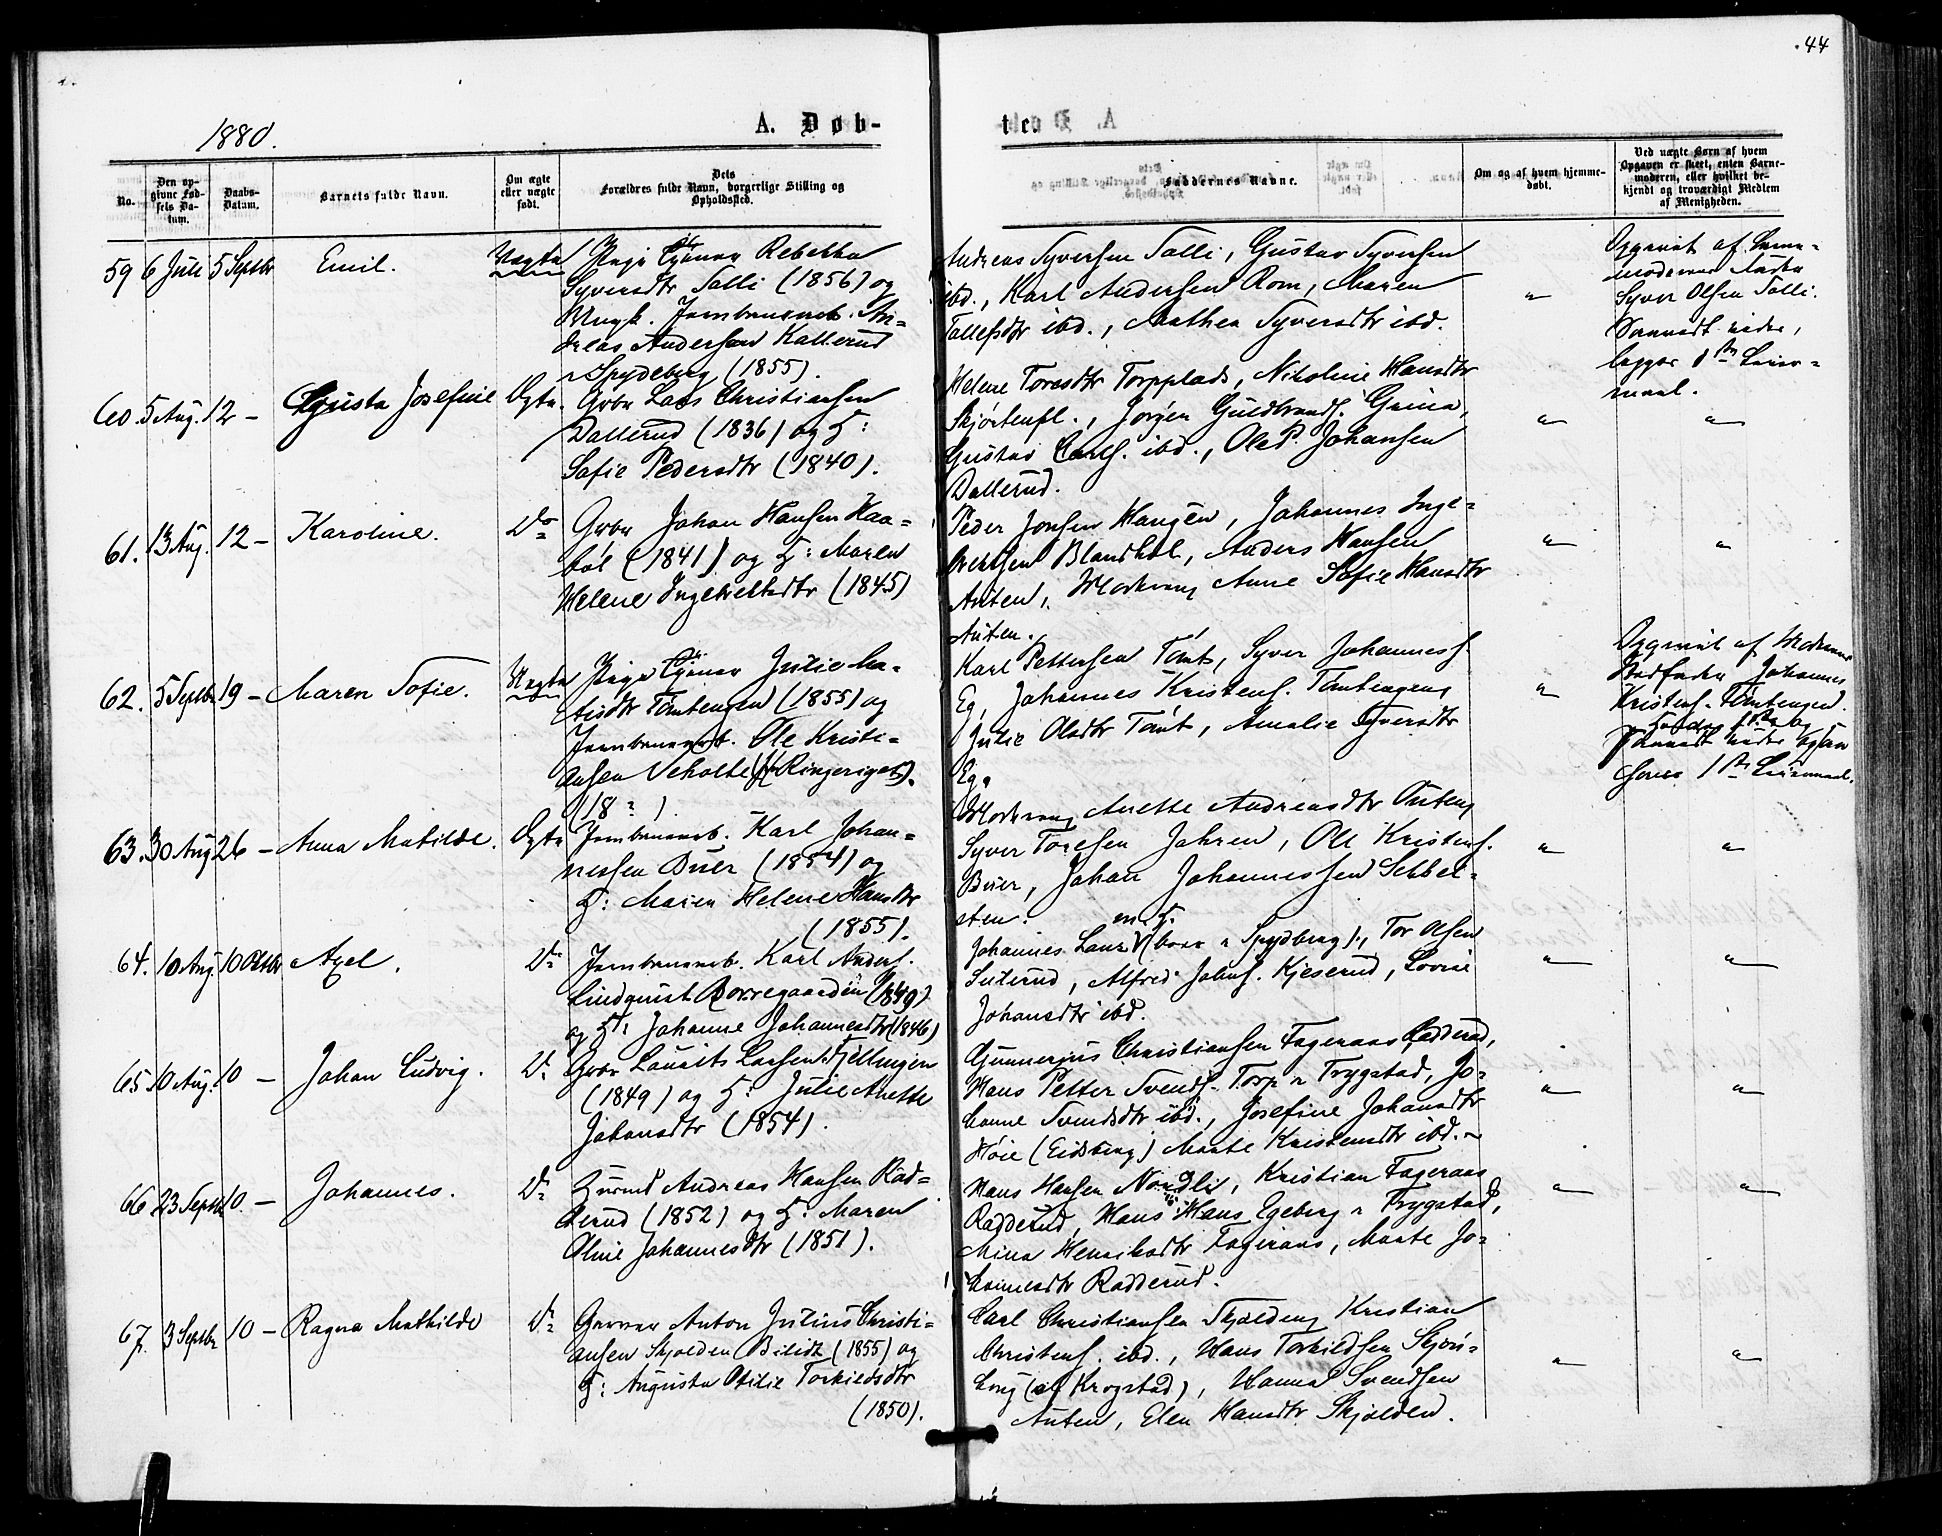 44
1880.
A. Døb-
te.
No.
Den op-
givne Fød-
sels Da-
tum.
Daabs-
Datum.
Barnets fulde Navn.
Om ægte
eller uægte
født.
Dets
Forældres fulde Navn, borgerlige Stilling og
Opholdssted.
Faddernes Navne.
Om og af hvem hjemme-
døbt.
Ved uægte Børn af hvem
Opgaven er skeet, enten Barne-
moderen, eller hvilket be-
kjendt og troværdigt Medlem
af Menigheden.
59 6 Juli 5 Septbr Emil. Uægte Pige Rebekka
Syversdtr Salli (1856) og
Ungk. Jernbanearb. An-
dreas Andersen Kallerud
Spydeberg (1855).
Andreas Syversen Salli, Gustav Syversen
ibd., Karl Andersen Rom, Maren
Tollefsdtr ibd., Mathea Syversdtr ibd.
"
Opgivet af Barne-
moderens Fader
Syver Olsen Salli.
60. 5 Aug. 12 - Gusta Josefine Ægte. Gbr Lars Christiansen
Dallerud (1836) og H:
Sofie Pedersdtr (1840).
Helene Toresdtr Torpplads, Nikoline Hansdtr
Skjørtenpl., Jørgen Guldbrands.
Gustav ibd., Ole P. Johansen
Dallerud.
" "
61. 13 Aug. 12 - Karoline. Do Gbr Johan Hansen Kaa-
bøl (1841) og H: Maren
Helene Ingebretsdtr (1845)
Peder Jonsen Haugen, Johannes Inge-
bretsen Blandkol, Anders Hansen
Auten, Anne Sofie Hansdtr
Auten.
" "
62. 5 Septbr 19 - Maren Sofie. Uægte Pige Julie
Tømtengen (1855) og
Jernbanearb. Ole Kristi-
ansen (Ringeriget).
(18 ? )
Karl Pettersen Tømt, Syver Johanness.
Eg, Johannes Kristens. Tømtengen
Julie Olsdtr Tømt, Amalie Syversdtr
Eg.
"
Opgivet af Moderens
Johannes
Kristens. Tømtengen.
63. 30 Aug 26 - Anna Matilde. Ægte Jernbanearb. Karl Johan-
nessen Buer (1854) og
H: Maren Helene Hansdtr
(1855).
Anette Andreasdtr Auten,
Syver Toresen Jahren, Ole Kristens.
Buer, Johan Johannessen
" "
64. 10 Aug 10 Oktbr Axel. Do Jernbanearb. Karl Anders.
Lindquist Borregaarden (1849)
og H: Johanne Johannesdtr (1846)
Johannes Spydberg), Tor Olsen
Alfred Johns. Kjeserud, Lovise
Johansdtr ibd.
" "
65 10 Aug. 10 - Johan Ludvig. Do Gbr Laurits Larsen Fjellengen
(1849) og H: Julie Anette
Johansdtr (1854).
Gunnerius Christiansen Fageraas Radderud,
Hans Petter Svends. Torp Trygstad, Jo-
hanne Svendsdtr ibd., Josefine Johansdtr
Høie (Eidsberg) Marte Kristensdtr ibd.
" "
66 23 Septbr 10. - Johannes. Do Andreas Hansen Rad-
derud (1852) og H: Maren
Oline Johannesdtr (1851).
Hans Hansen Nordli, Kristian Fageraas
Radderud, Hans Hans. Egeberg Trygstad,
Mina Henriksdtr Fageraas, Marte Jo-
hannesdtr Radderud.
" "
67. 3 Septbr 10 - Ragna Mathilde Do Anton Julius Christi-
ansen Skjolden (1855) og
H: Augusta Otilie Torkildsdtr
(1850).
Carl Christiansen Skjolden, Kristian
Christens. ibd., Hans Torkildsen
(af Krogstad), Hanna Svendsen
Auten, Elen Hansdtr Skjolden.
" "